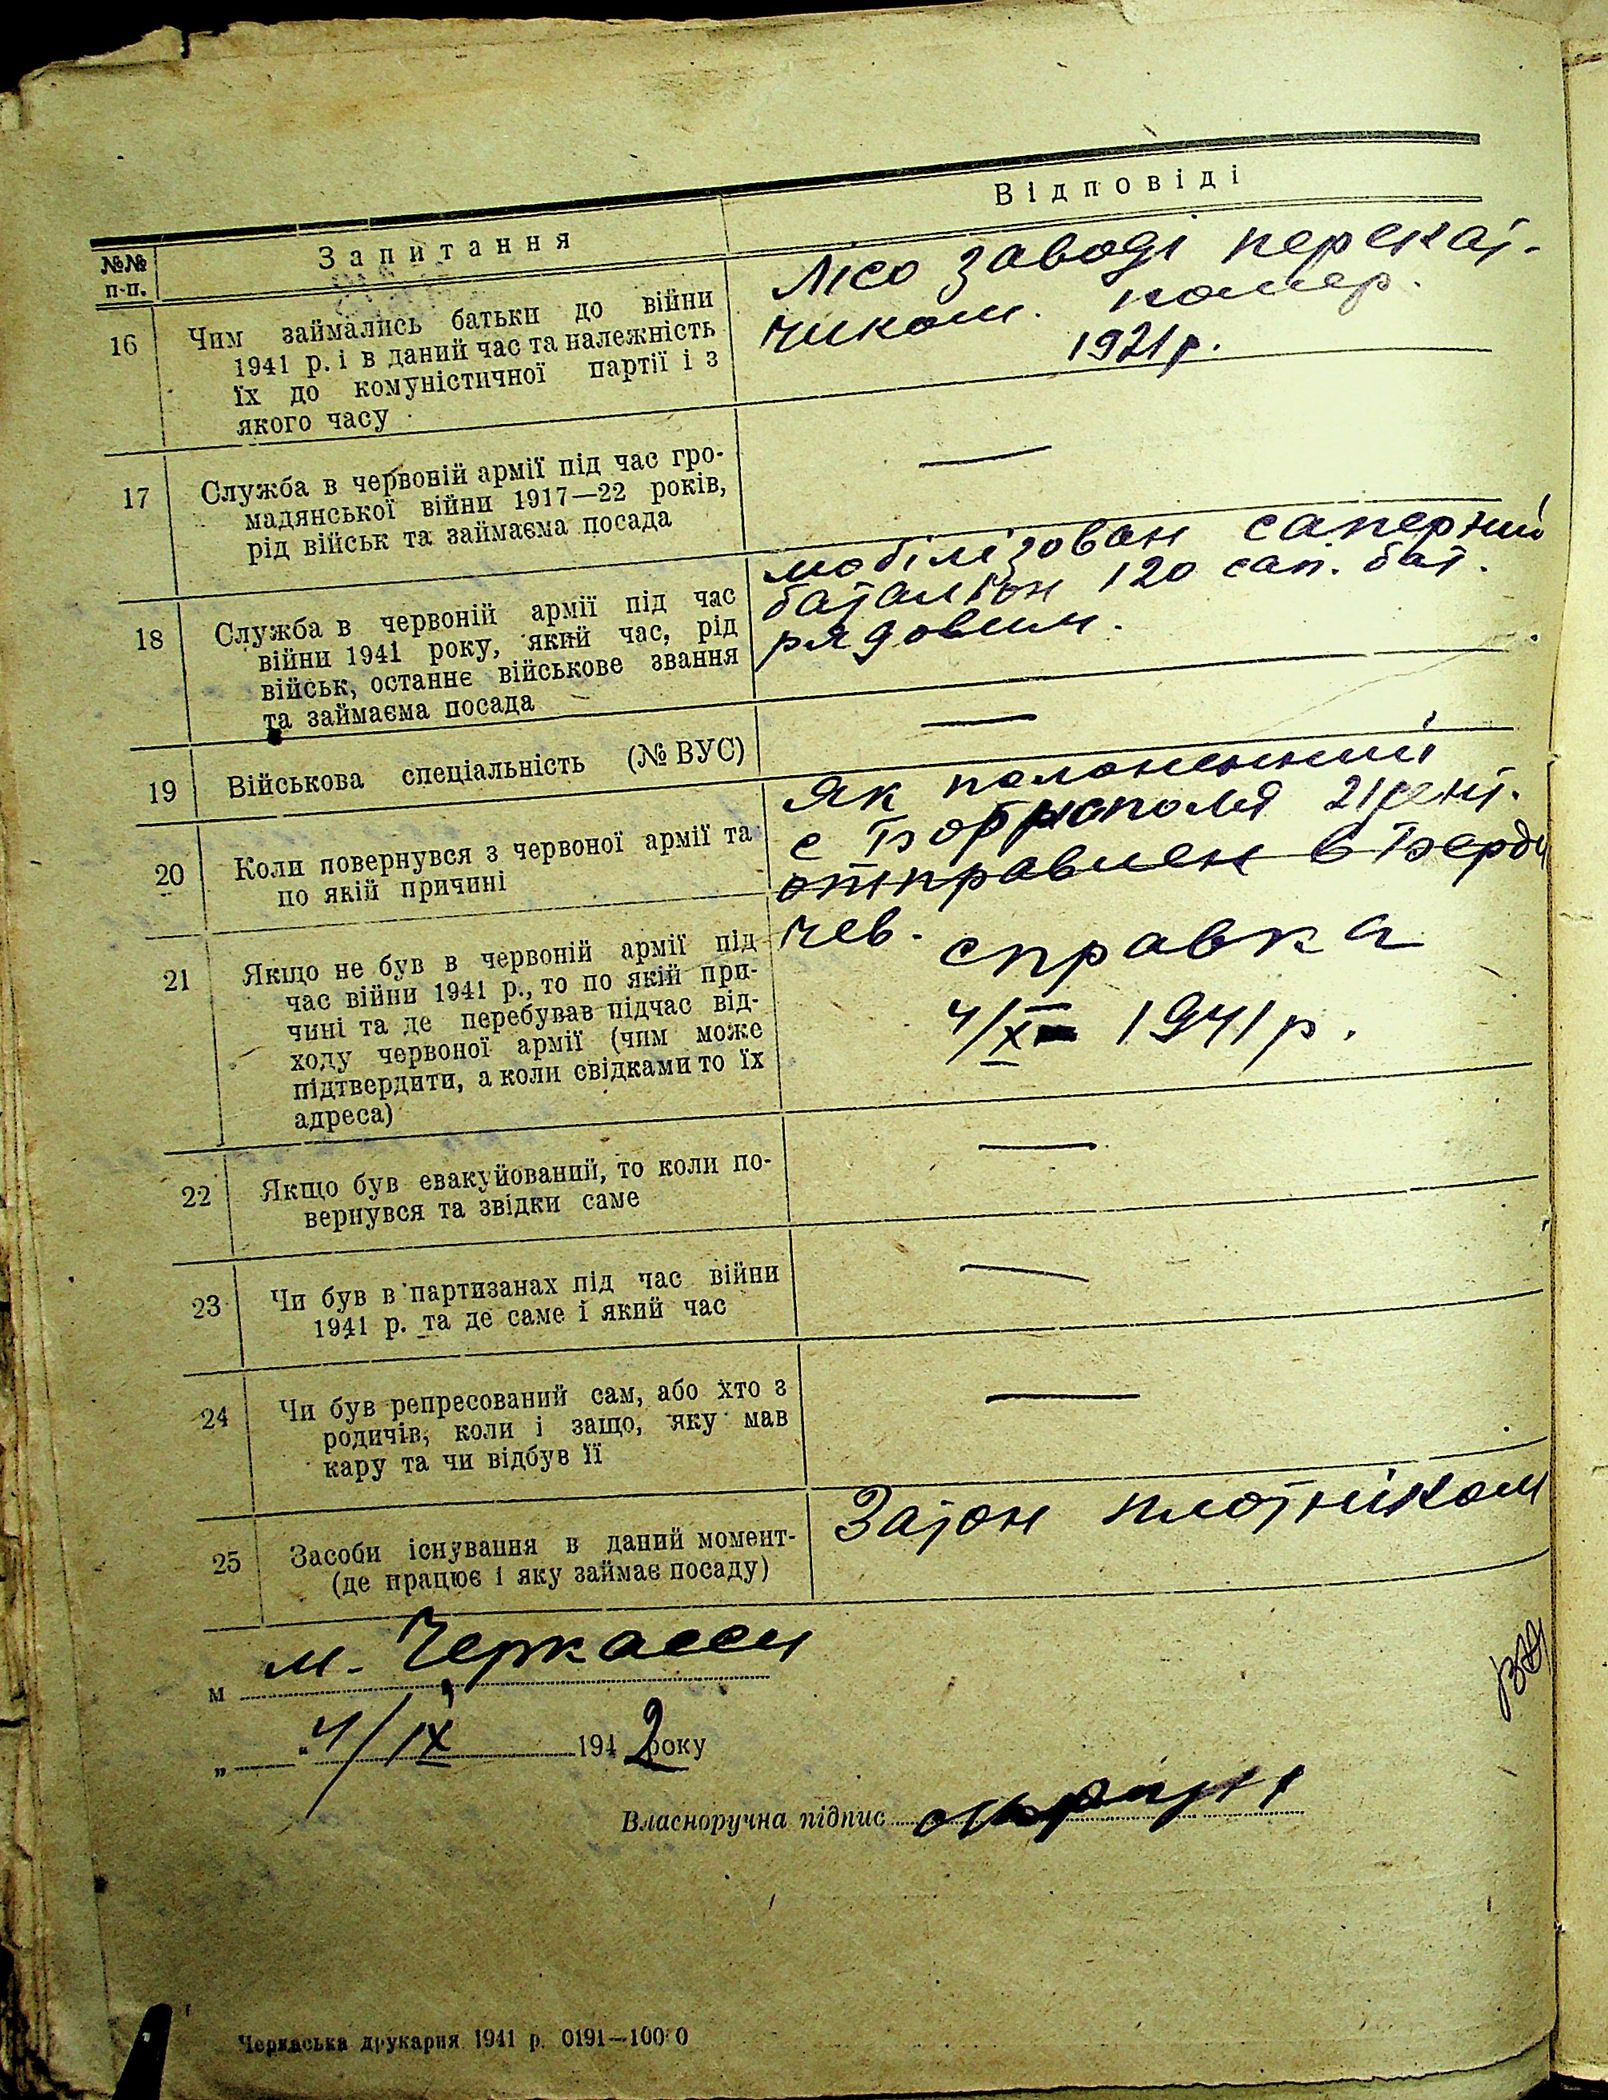 №№ п-п.
Запитання
Відповіді
16
Чим займались батьки до війни
1941 р. і в даний час та належність
їх до комуністичної партії і з
якого часу
Лісо заводі перекат-
чиком. помер.
1921 р.
17
Служба в червоній армії під час гро-
мадянської війни 1917—22 років,
рід військ та займаєма посада
—
18
Служба в червоній армії під час
війни 1941 року, який час, рід
військ, останнє військове звання
та займаєма посада
мобілізован саперний
баталіон 120 сап. бат.
рядовим.
19
Військова спеціальність (№ ВУС)
—
20
Коли повернувся з червоної армії та
по якій причині
Як полоненний
с Борисполя 21
отправлен в Берди
чев.
21
Якщо не був в червоній армії під
час війни 1941 р., то по якій при-
чині та де перебував підчас від-
ходу червоної армії (чим може
підтвердити, а коли свідками то їх
адреса)
справка
4/X 1941 р.
22
Якщо був евакуйований, то коли по-
вернувся та звідки саме
—
23
Чи був в партизанах під час війни
1941 р. та де саме і який час
—
24
Чи був репресований сам, або хто з
родичів, коли і защо, яку мав
кару та чи відбув її
—
25
Засоби існування в даний момент-
(де працює і яку займає посаду)
Затон плотніком
м м. Черкасси
„ “ 4/IX 1942 року
Власноручна підпис
Черкаська друкарня 1941 р. 0191—10000